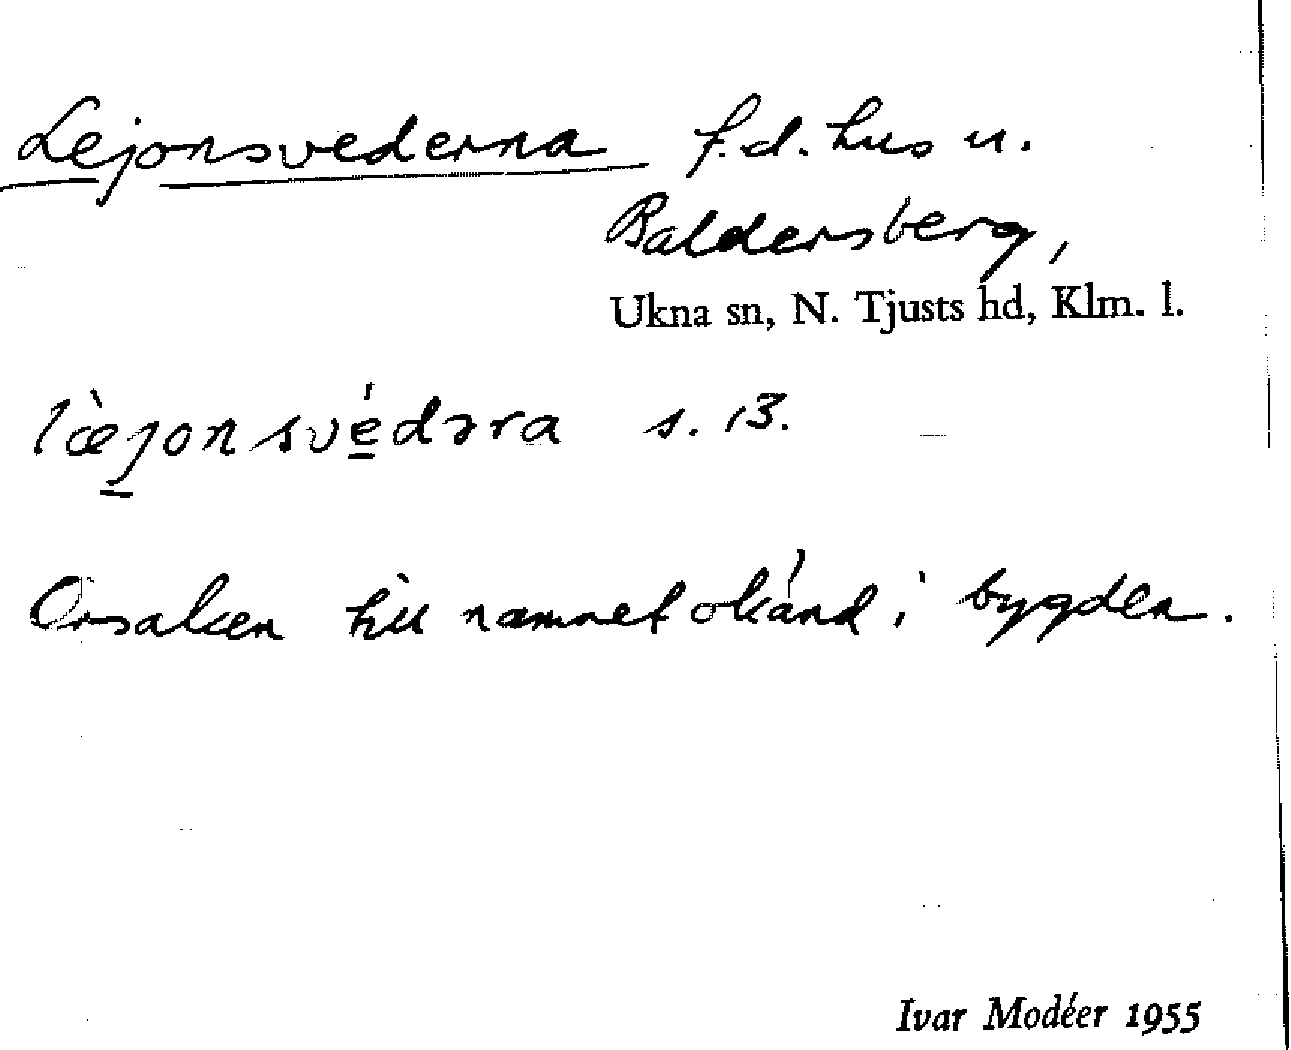 Lejonsvederna f.d. hus u.
Baldersberg,
Ukna sn, N. Tjusts hd, Klm. l.
læ̀jonsvédəra s. 13.
Orsaken till namnet okänd i bygden.
Ivar Modéer 1955